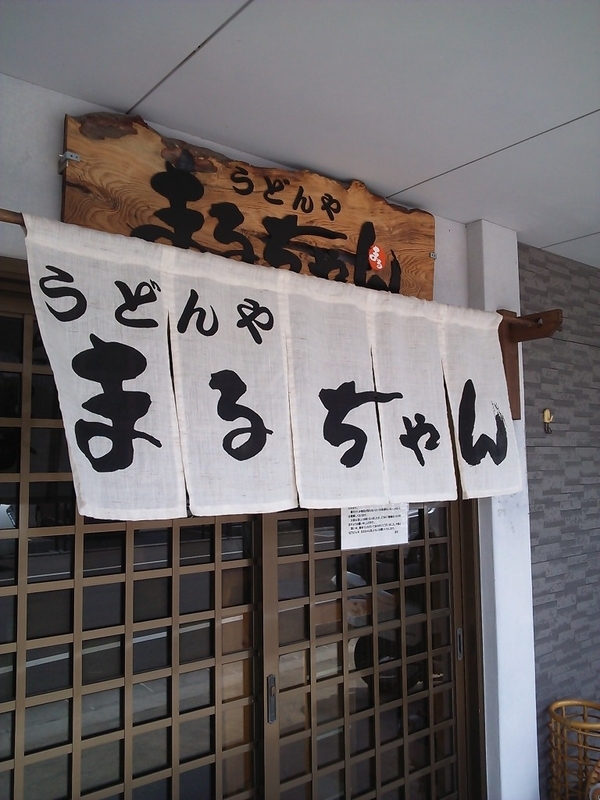 うどんや
まるちゃん
うどんや
まるちゃん